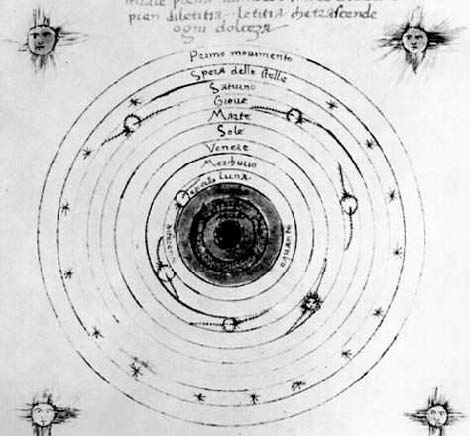 pien diletitia letitia chetrascende
ogni dolceza
Primo movimento
Spera delle stelle
Saturno
Giove
Marte
Sole
Venere
Luna